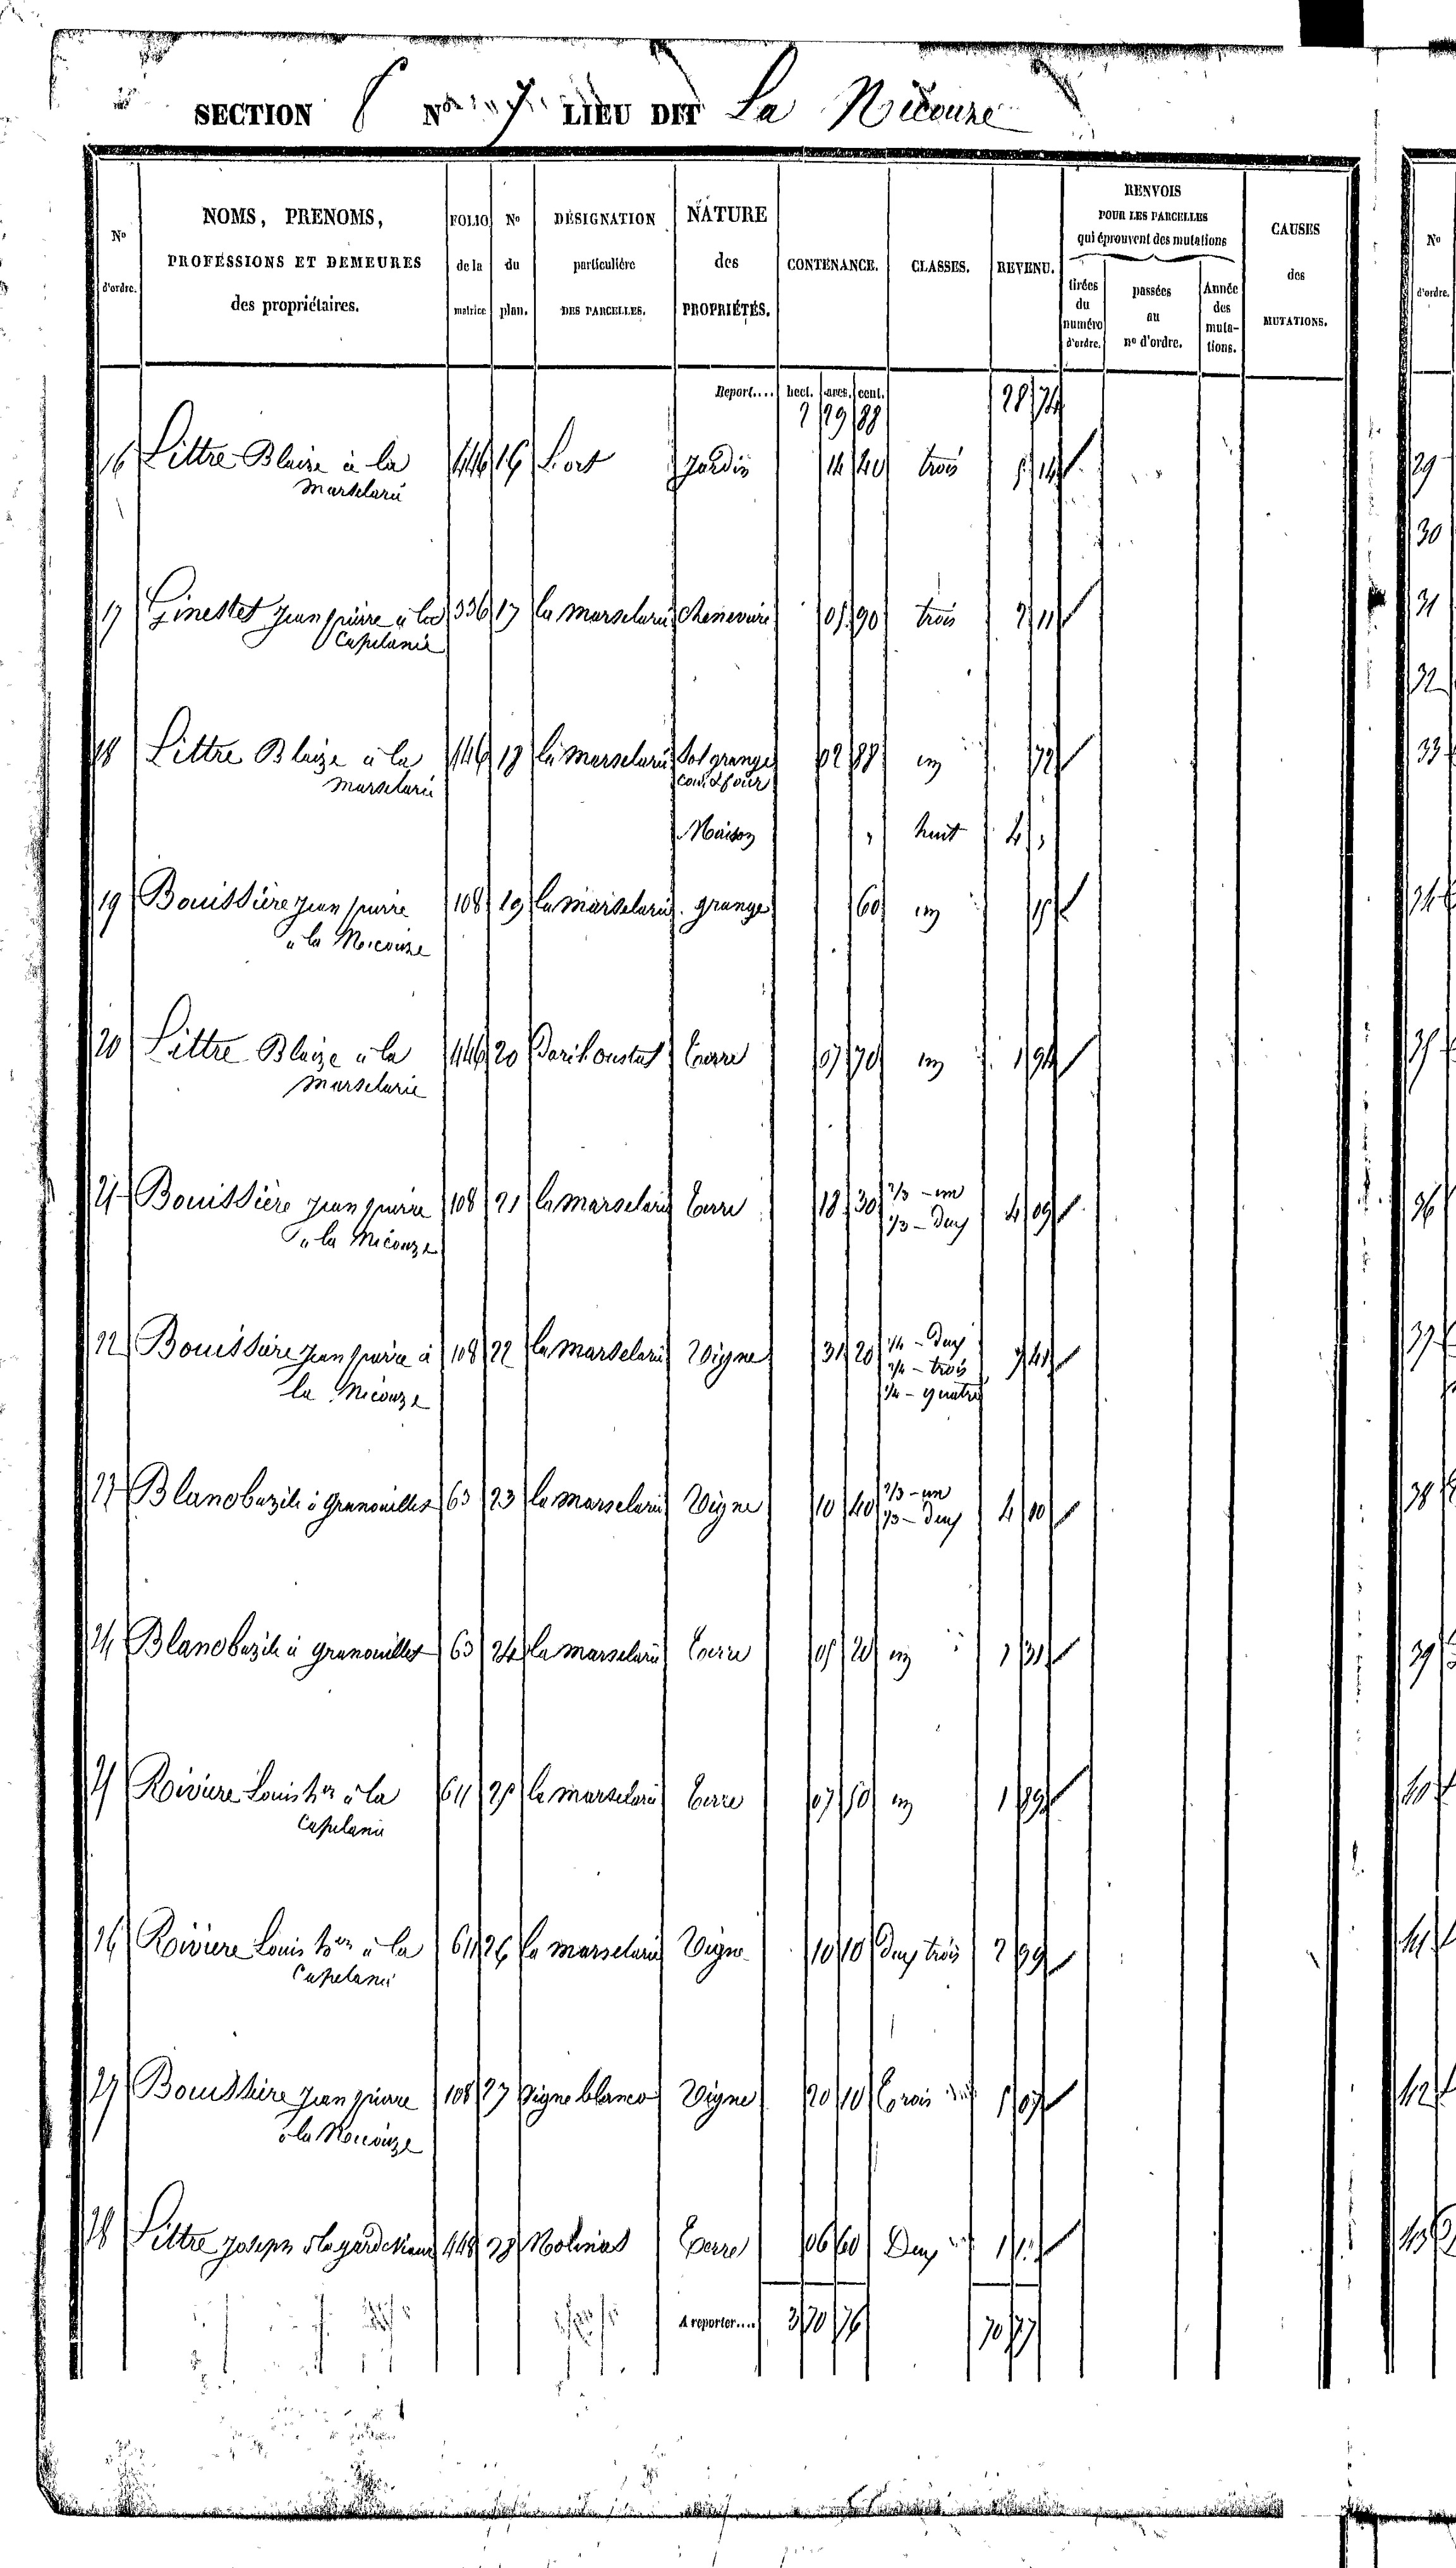 SECTION N° 7 LIEU DIT La Nicouze
N° d'ordre.
NOMS, PRENOMS, PROFESSIONS ET DEMEURES des propriétaires.
FOLIO de la matrice
N° du plan.
DÉSIGNATION particulière DES PARCELLES.
NATURE des PROPRIÉTÉS.
CONTENANCE.
CLASSES.
REVENU.
RENVOIS POUR LES PARCELLES qui éprouvent des mutations
tirées du numéro d'ordre.
passées au n° d'ordre.
Année des mutations.
CAUSES des MUTATIONS.
Report.... hect. ares. cent.
2 29 88 28 74
16 Littre Blaize à la 446 16 L'ort Jardin 14 40 trois 5 14
Marselarié
17 Ginestet Jean pierre à la 336 17 la Marselarié Cheneviere 05 90 trois 2 11
Capelanié
18 Littre Blaize à la 446 18 la Marselarié Sol grange 02 88 un 72
Marselarié cour & four
Maison " huit 4 "
19 Bouissière Jean pierre 108 19 la Marselarié grange 60 un 15
à la Nicouze
20 Littre Blaize à la 446 20 Terre 07 70 un 1 94
Marselarie
21 Bouissière Jean pierre 108 21 la Marselarié Terre 18 30 2/3 - un 4 09
à la Nicouze 1/3 - Deux
22 Bouissière Jean pierre à 108 22 la Marselarié Vigne 31 20 1/4 - Deux 7 41
la Nicouze 2/4 - trois
1/4 - quatre
23 Blanc bazile à Granouillet 63 23 la Marselarié Vigne 10 40 2/3 - un 4 10
1/3 - Deux
24 Blanc bazile à granouillet 63 24 la Marselarié Terre 05 20 un 1 31
25 Riviere Louis à la 611 25 la Marselarié Terre 07 50 un 1 89
Capelanié
26 Riviere Louis à la 611 26 la Marselarié Vigne 10 10 Deux trois 2 99
Capelanié
27 Bouissière Jean pierre 108 27 Vigne blanco Vigne 20 10 Trois 5 07
à la Nicouze
28 Littre Joseph 448 28 Molinias Terre 06 60 Deux 1
A reporter.... 3 70 76 70 77
N° d'ordre.
29
30
31
32
33
34
35
36
37
38
39
40
41
42
43